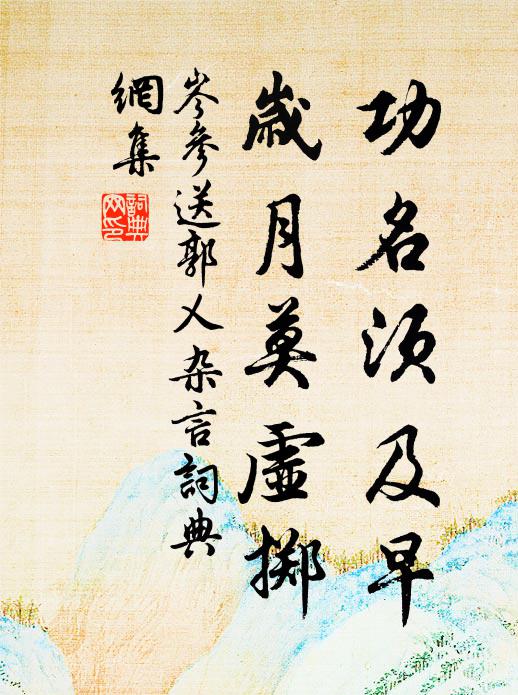 功名须及早
歲月莫虛掷
岑參送郭乂杂言詞典
網集
詞典
网印